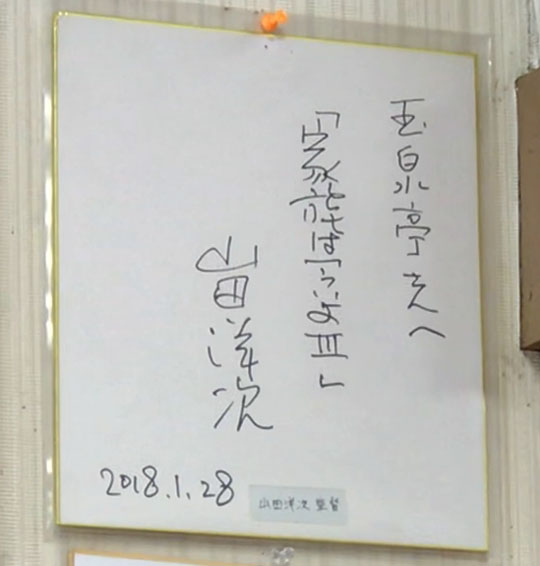 玉泉亭さんへ
「家族はつらいよⅢ」
山田洋次
2018.1.28
山田洋次 監督